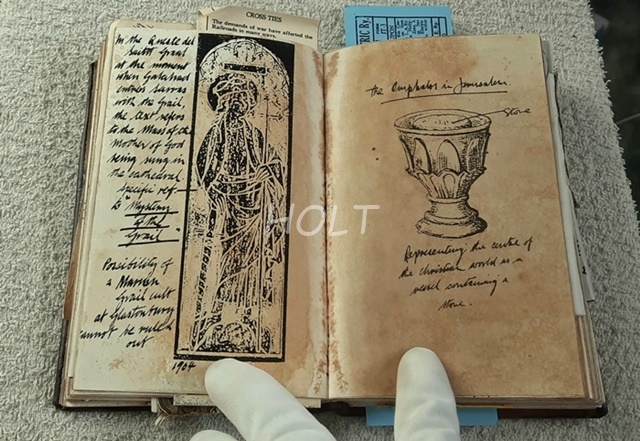 CROSS TIES
The demands of war have affected the
Railroads in many ways,
In the Queste del
Saint Graal
at the moment
when Galahad
enters Sarras
with the Grail,
the text refers
to the Mass of the
Mother of God
being sung in
the cathedral
specific ref.
to "Mystery
of the
Grail".
Possibility of
a Marian
Grail cult
at Glastonbury
cannot be ruled
out
1904
RIC Ry.
the Omphalos in Jerusalem.
Stone
Representing the centre of
the Christian world as a
vessel containing a
stone.
HOLT